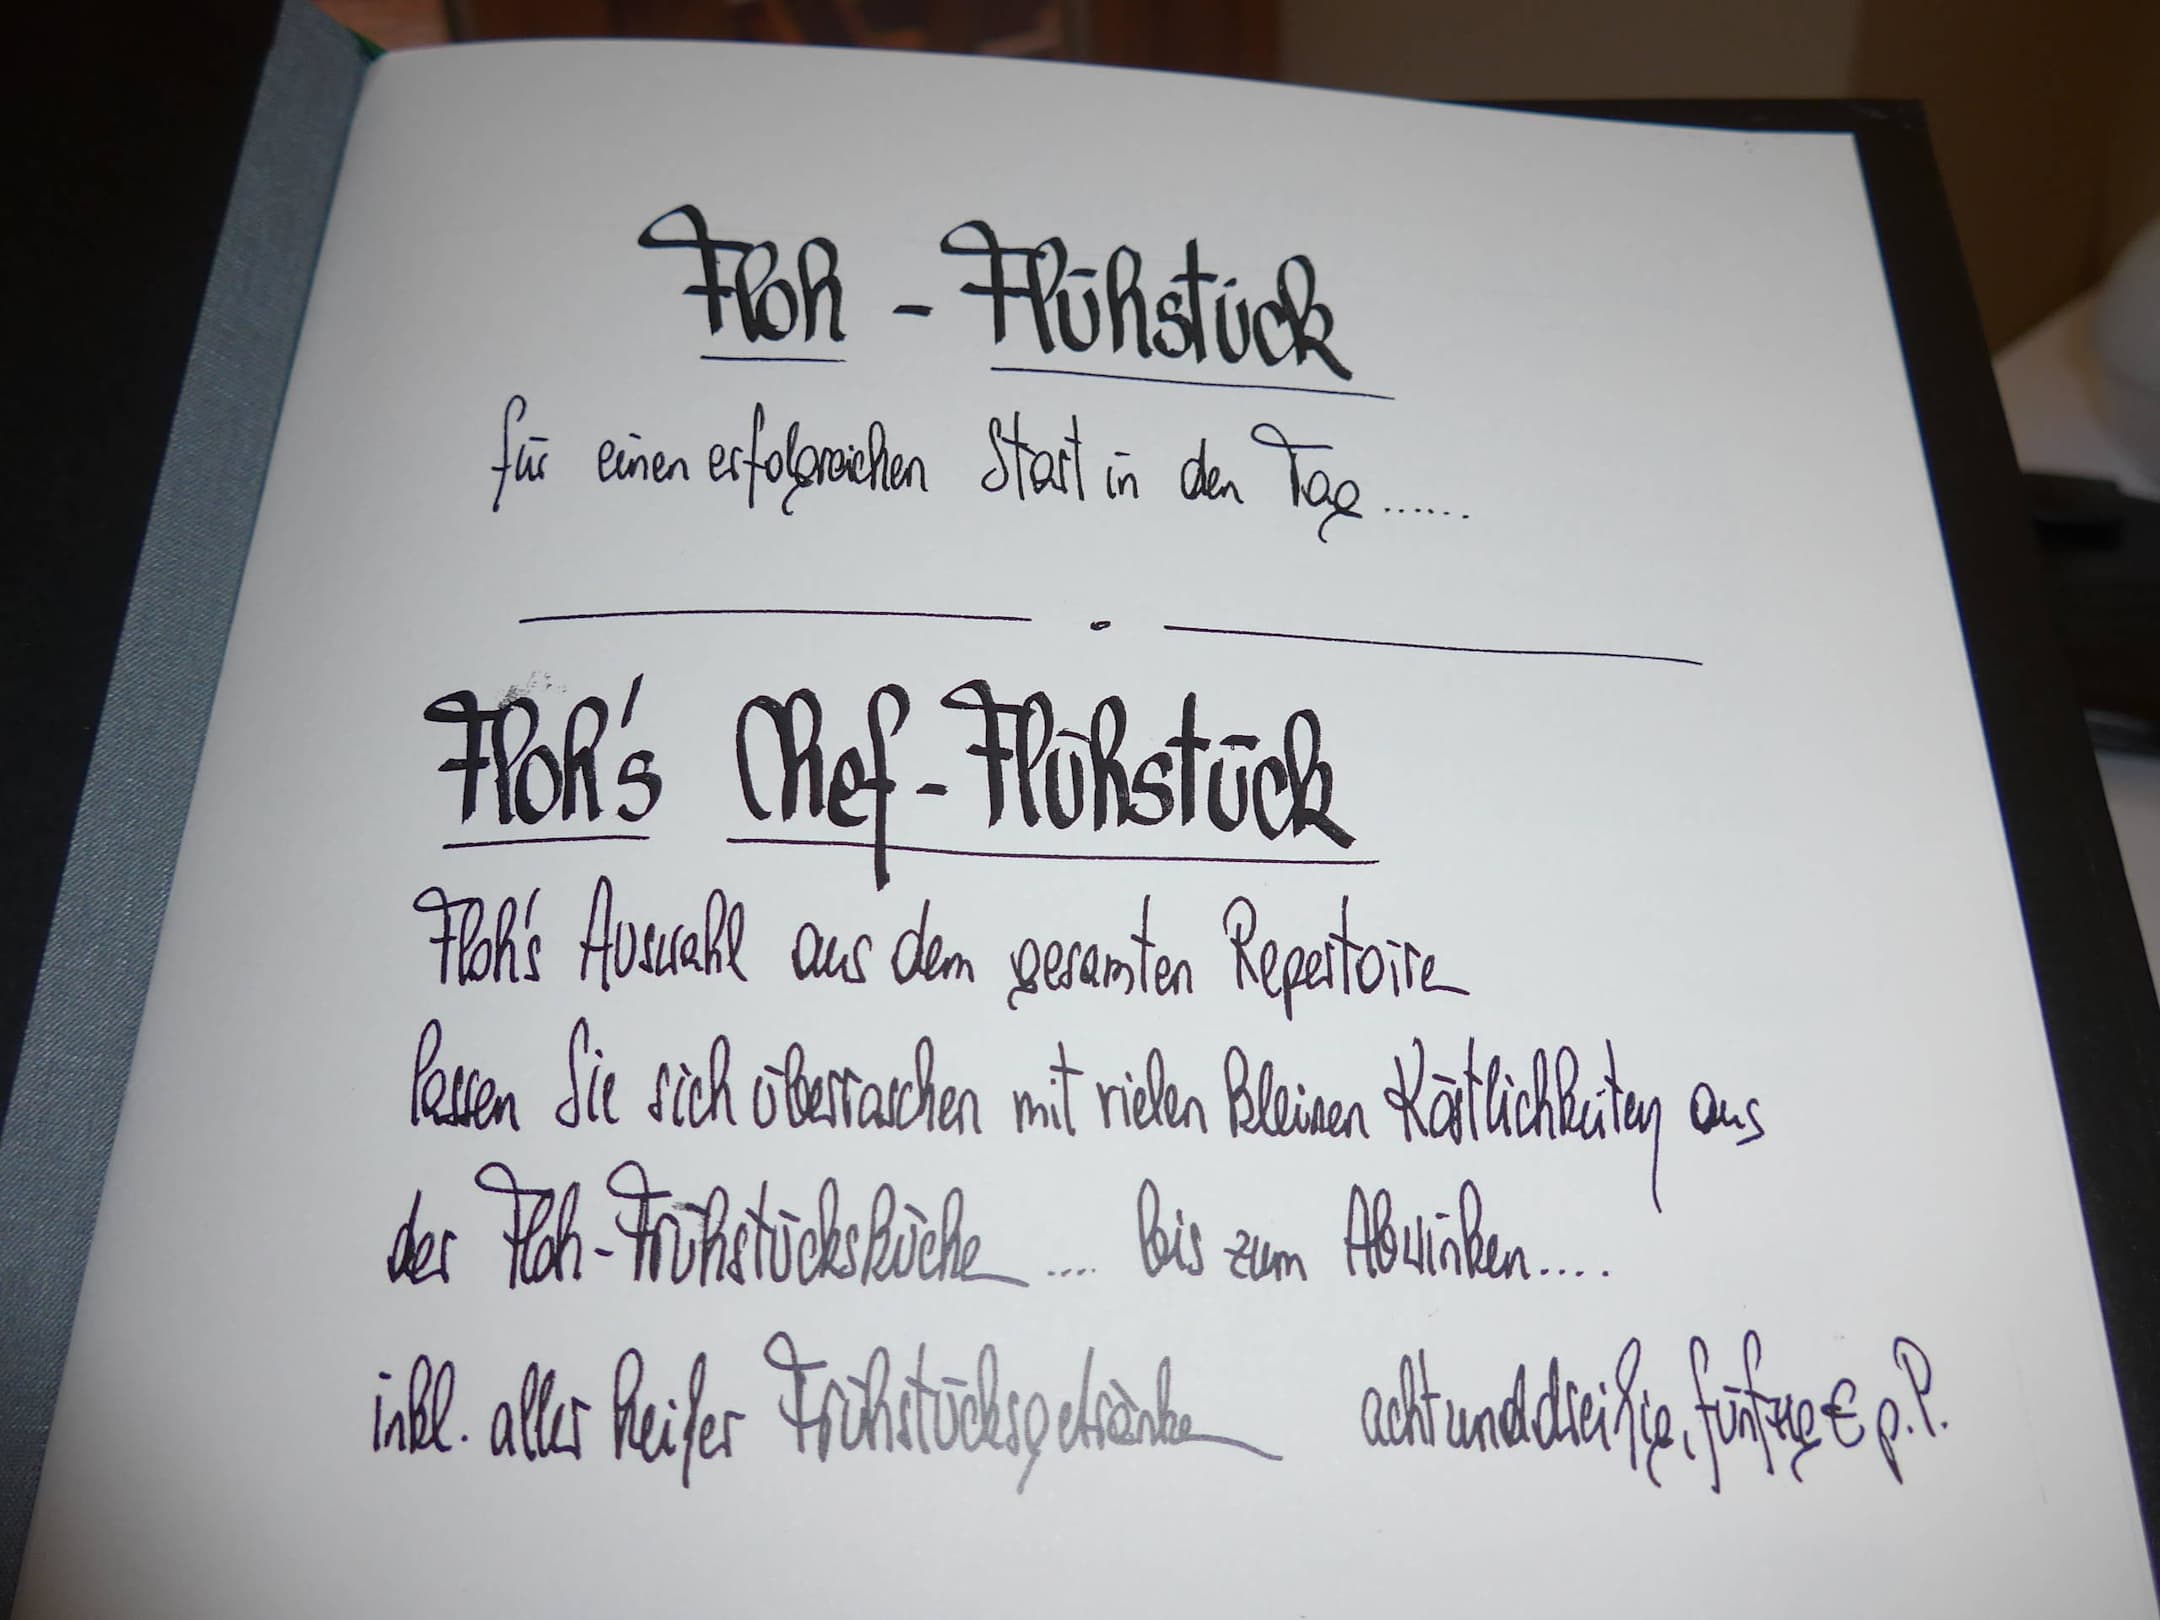 Floh - Flühstück
für einen erfolgreichen Start in den Tag......
Floh's Chef-Flühstück
Floh's Auswahl aus dem gesamten Repertoire
lassen Sie sich überraschen mit vielen kleinen Köstlichkeiten aus
der Floh-Frühstücksküche .... bis zum Abwinken....
inkl. aller heißer Frühstücksgetränke achtunddreißig, fünfzig € p. P.